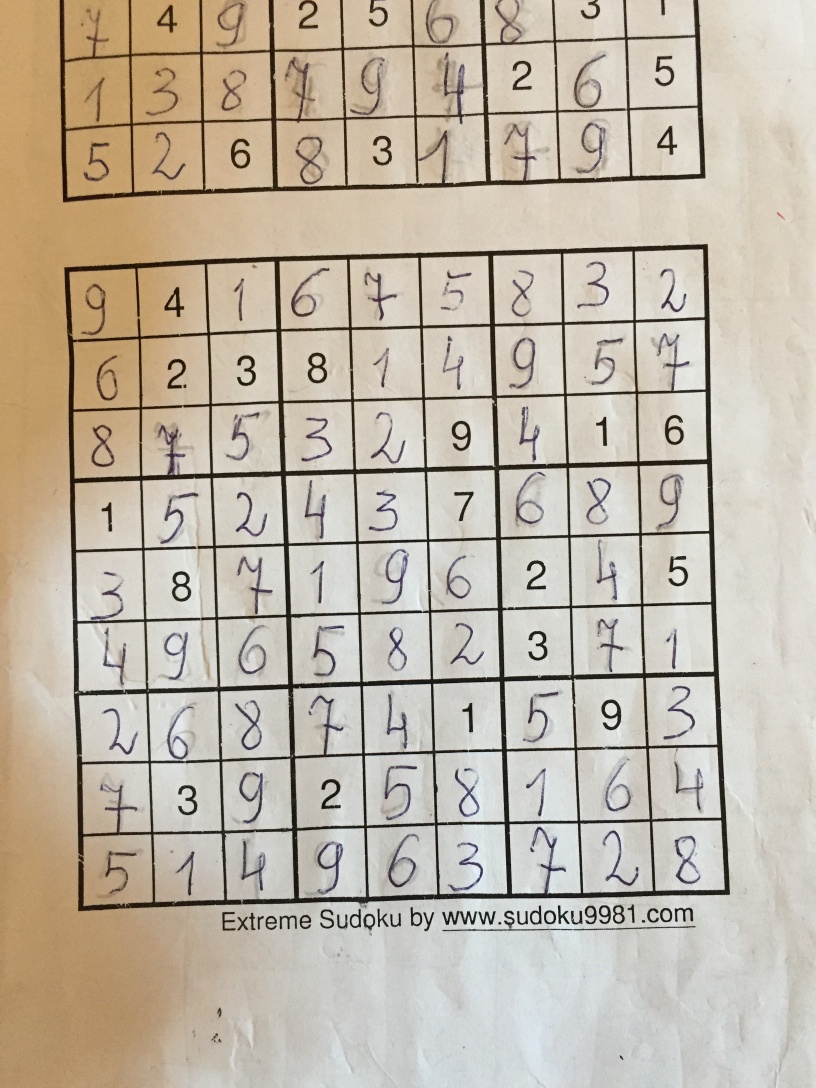 7 4 9 2 5 6 8 3 1
1 3 8 7 9 4 2 6 5
5 2 6 8 3 1 7 9 4
9 4 1 6 7 5 8 3 2
6 2 3 8 1 4 9 5 7
8 7 5 3 2 9 4 1 6
1 5 2 4 3 7 6 8 9
3 8 7 1 9 6 2 4 5
4 9 6 5 8 2 3 7 1
2 6 8 7 4 1 5 9 3
7 3 9 2 5 8 1 6 4
5 1 4 9 6 3 7 2 8
Extreme Sudoku by www.sudoku9981.com